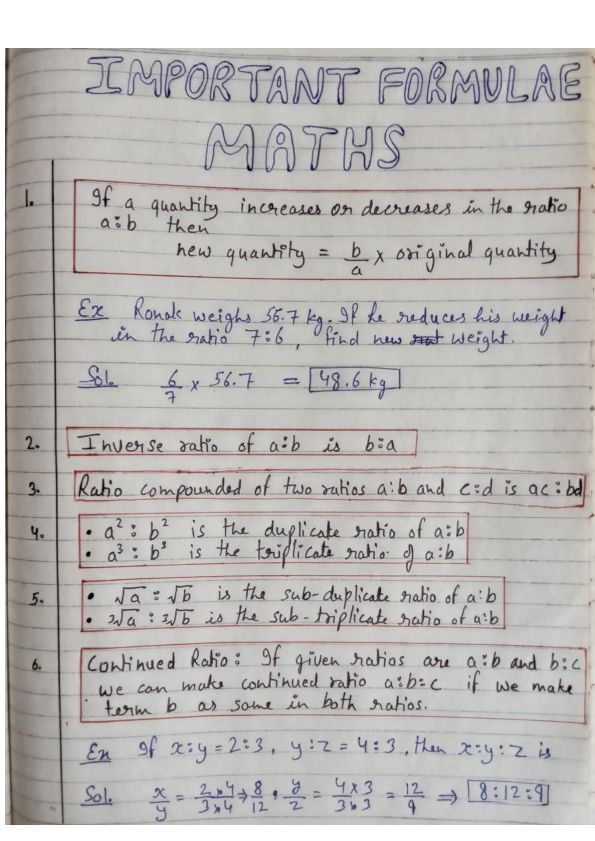 IMPORTANT FORMULAE
MATHS
1. If a quantity increases or decreases in the ratio
a:b then
new quantity = b/a × original quantity
Ex Ronak weighs 56.7 kg. If he reduces his weight
in the ratio 7:6, find new weight.
Sol. 6/7 × 56.7 = 48.6 kg
2. Inverse ratio of a:b is b:a
3. Ratio compounded of two ratios a:b and c:d is ac:bd
4. • a² : b² is the duplicate ratio of a:b
• a³ : b³ is the triplicate ratio of a:b
5. • √a : √b is the sub-duplicate ratio of a:b
• ³√a : ³√b is the sub-triplicate ratio of a:b
6. Continued Ratio: If given ratios are a:b and b:c
we can make continued ratio a:b:c if we make
term b as same in both ratios.
Ex If x:y = 2:3, y:z = 4:3, then x:y:z is
Sol. x/y = 2×4/3×4 ⇒ 8/12, y/z = 4×3/3×3 = 12/9 ⇒ 8:12:9